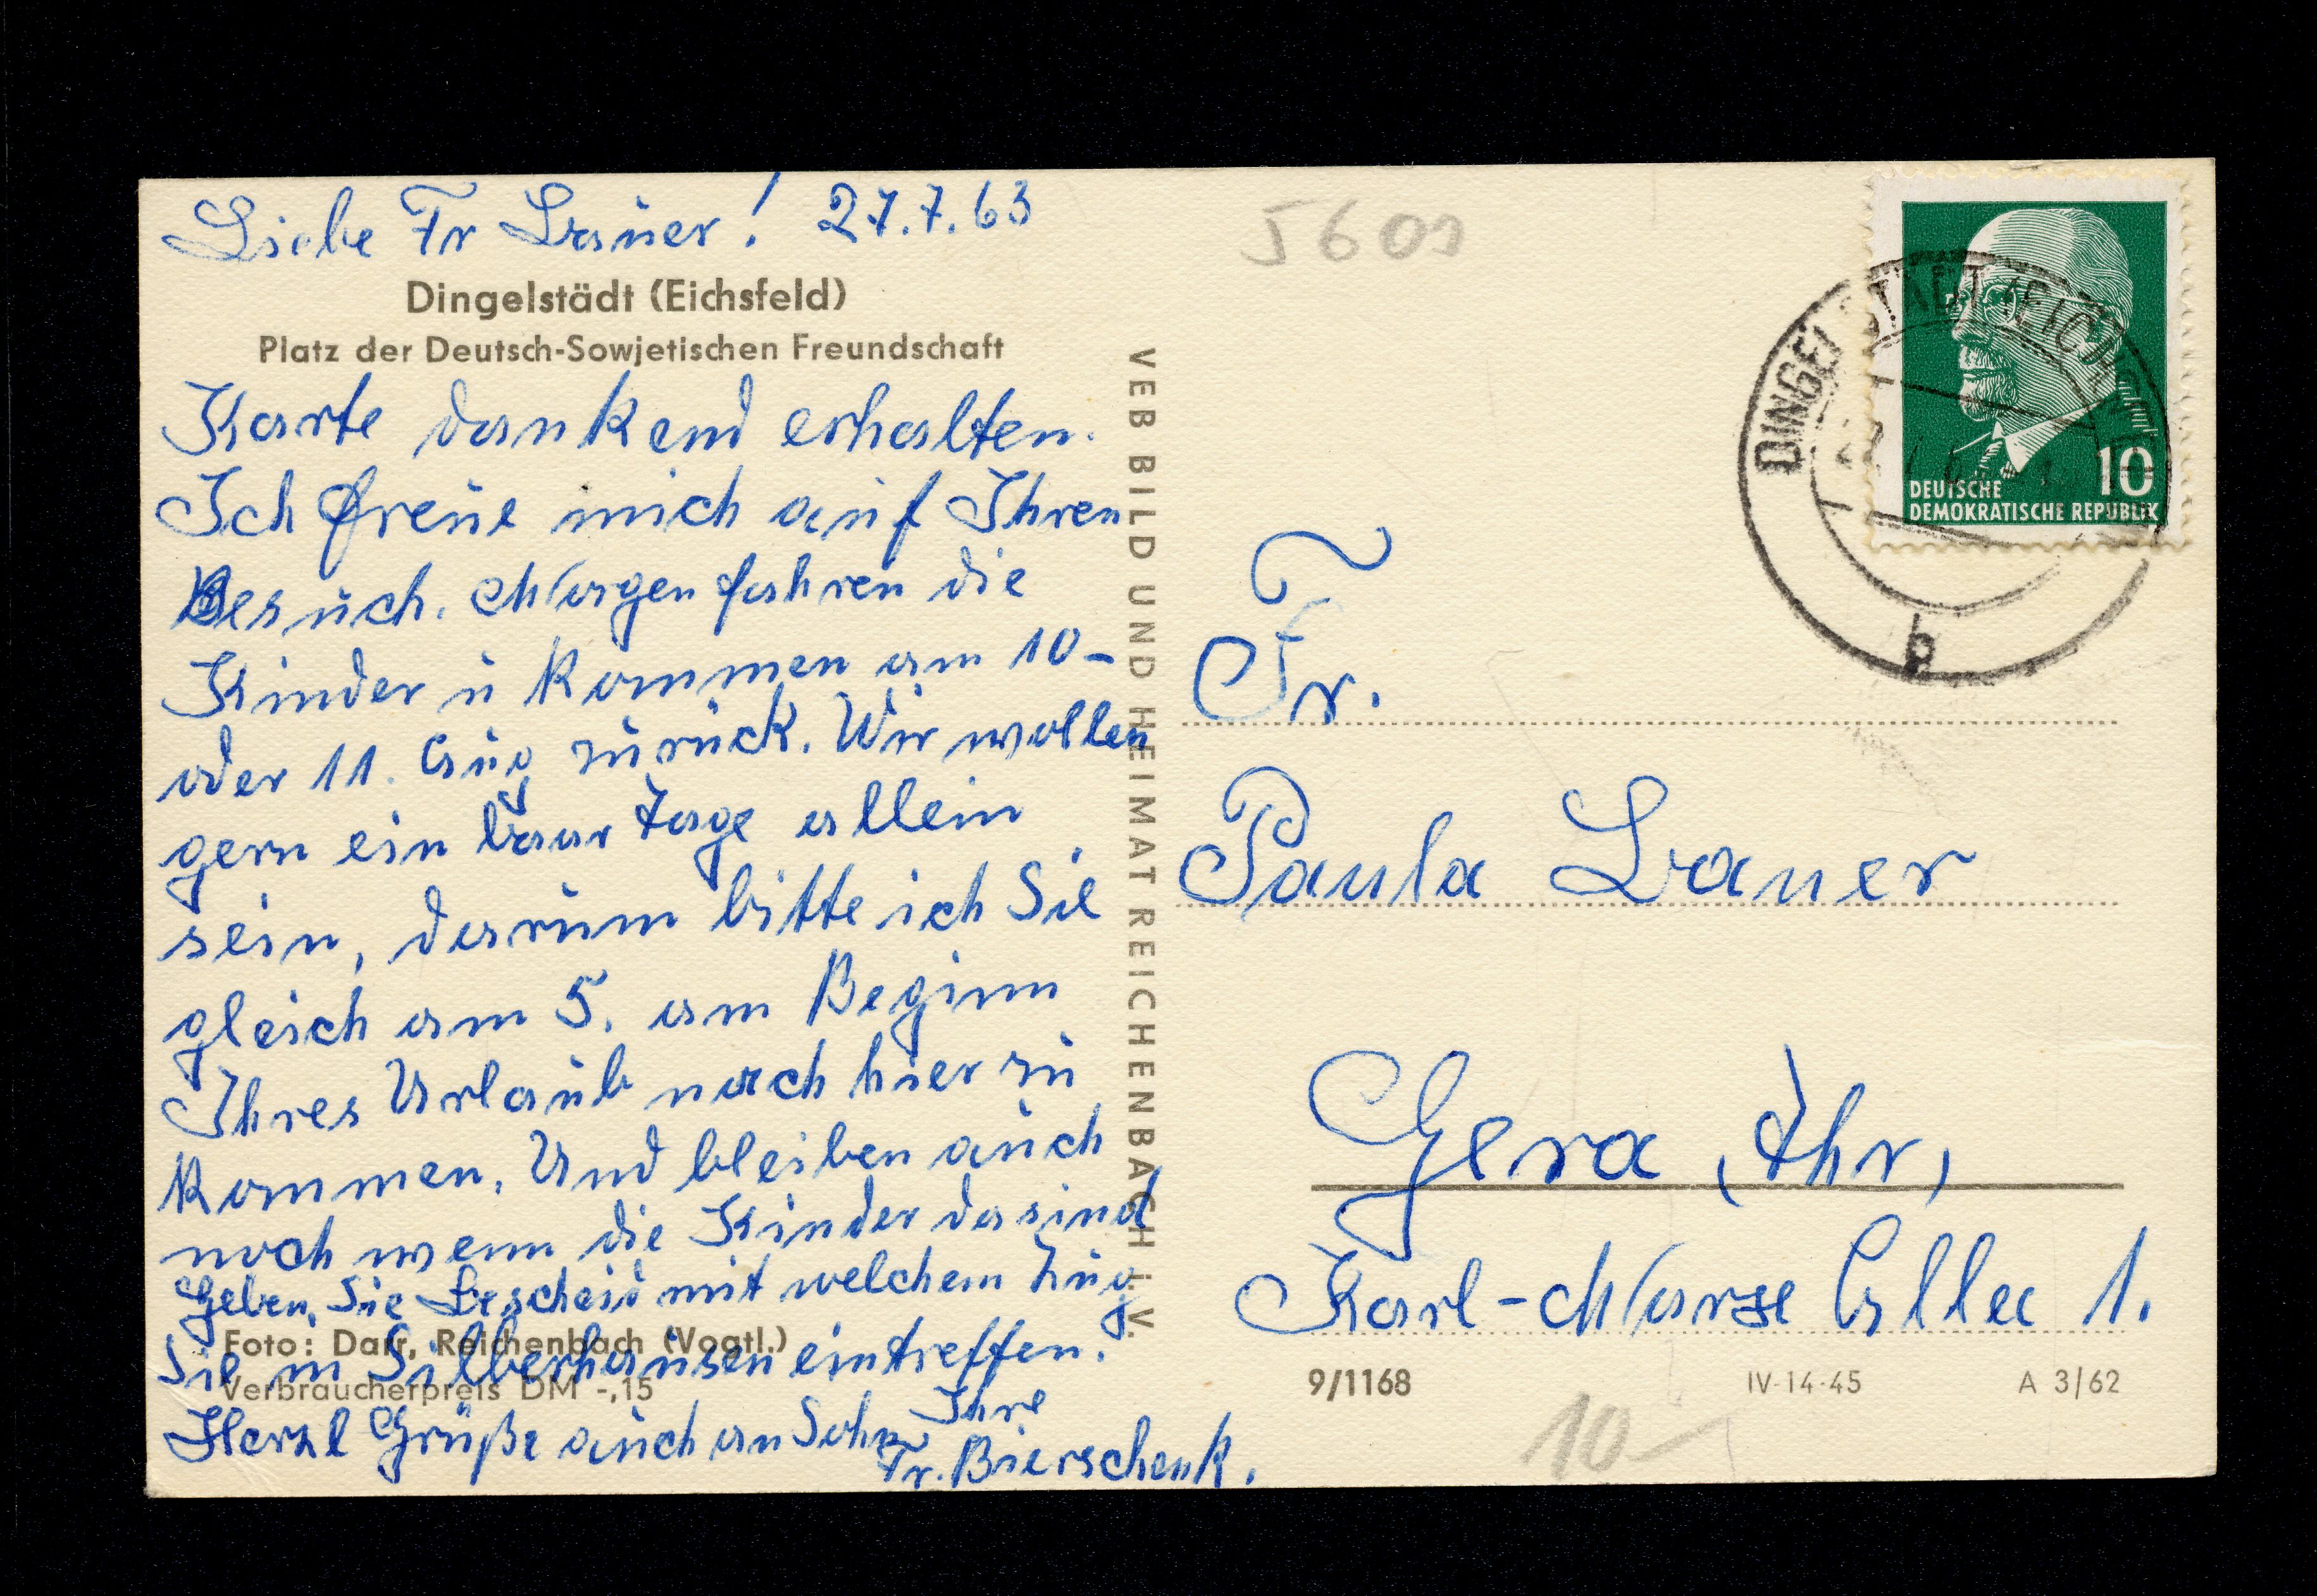 Liebe Fr Lauer! 27.7.63
Dingelstädt (Eichsfeld)
Platz der Deutsch-Sowjetischen Freundschaft
Karte dankend erhalten.
Ich freue mich auf Ihren
Besuch. Morgen fahren die
Kinder u kommen am 10-
oder 11. Aug zurück. Wir wollen
gern ein baar Tage allein
sein, darum bitte ich Sie
gleich am 5. am Beginn
Ihres Urlaub nach hier zu
kommen. Und bleiben auch
noch wenn die Kinder da sind
Geben Sie Bescheid mit welchem Zug
Sie in Silberhausen eintreffen.
Foto: Darr, Reichenbach (Vogtl.)
Verbraucherpreis DM -,15
Herzl Grüße auch an Sohn Ihre
Fr. Bierschenk.
VEB BILD UND HEIMAT REICHENBACH I. V.
5600
DINGELSTÄDT (EICHSF
b
10
DEUTSCHE
DEMOKRATISCHE REPUBLIK
Fr.
Paula Lauer
Gera (Thr)
Karl-Marx Allee 1.
9/1168 IV-14-45 A 3/62
10-